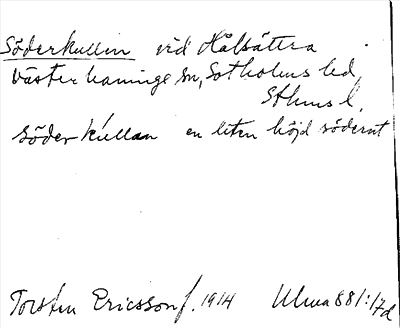 Söderkullen vid Hålsättra
Västerhaninge sn, Sotholms hd,
Sthms l.
Söderkullan en liten höjd söderut
Torsten Ericsson f. 1914 Ulma 881:17d